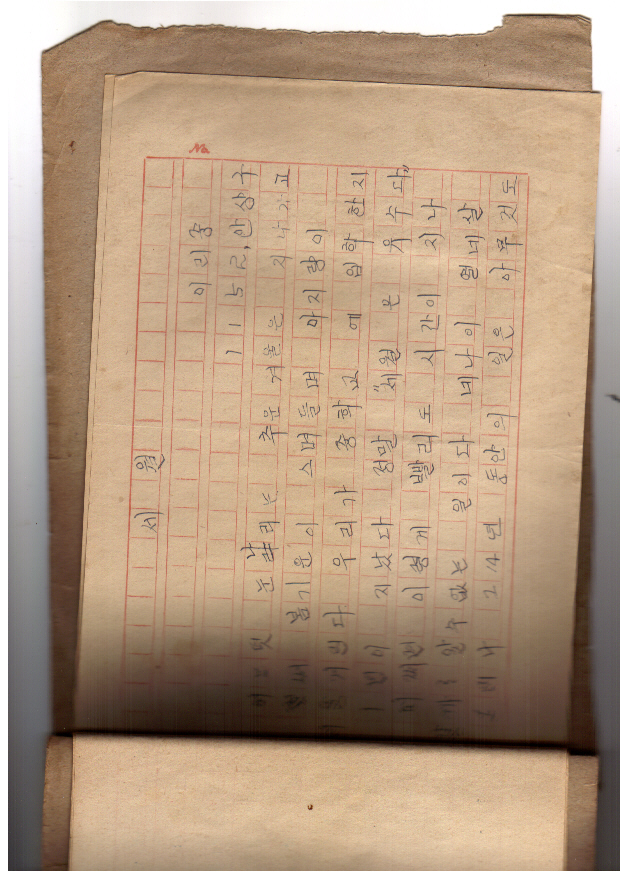 세월
No.
이리중
115 근, 안상구
어느덧 눈 날리는 추운 겨울은 지나가고
벌써 봄기운이 스며들며 아지랑이
거린다 우리가 중학교에 입학한지
1년이 지났다 정말 "세월은 유수다"
이렇게 빨리도 시간이 지나
알수없는 일이다 내나이 열네살
그러나 그 14년 동안의 일은 아무것도